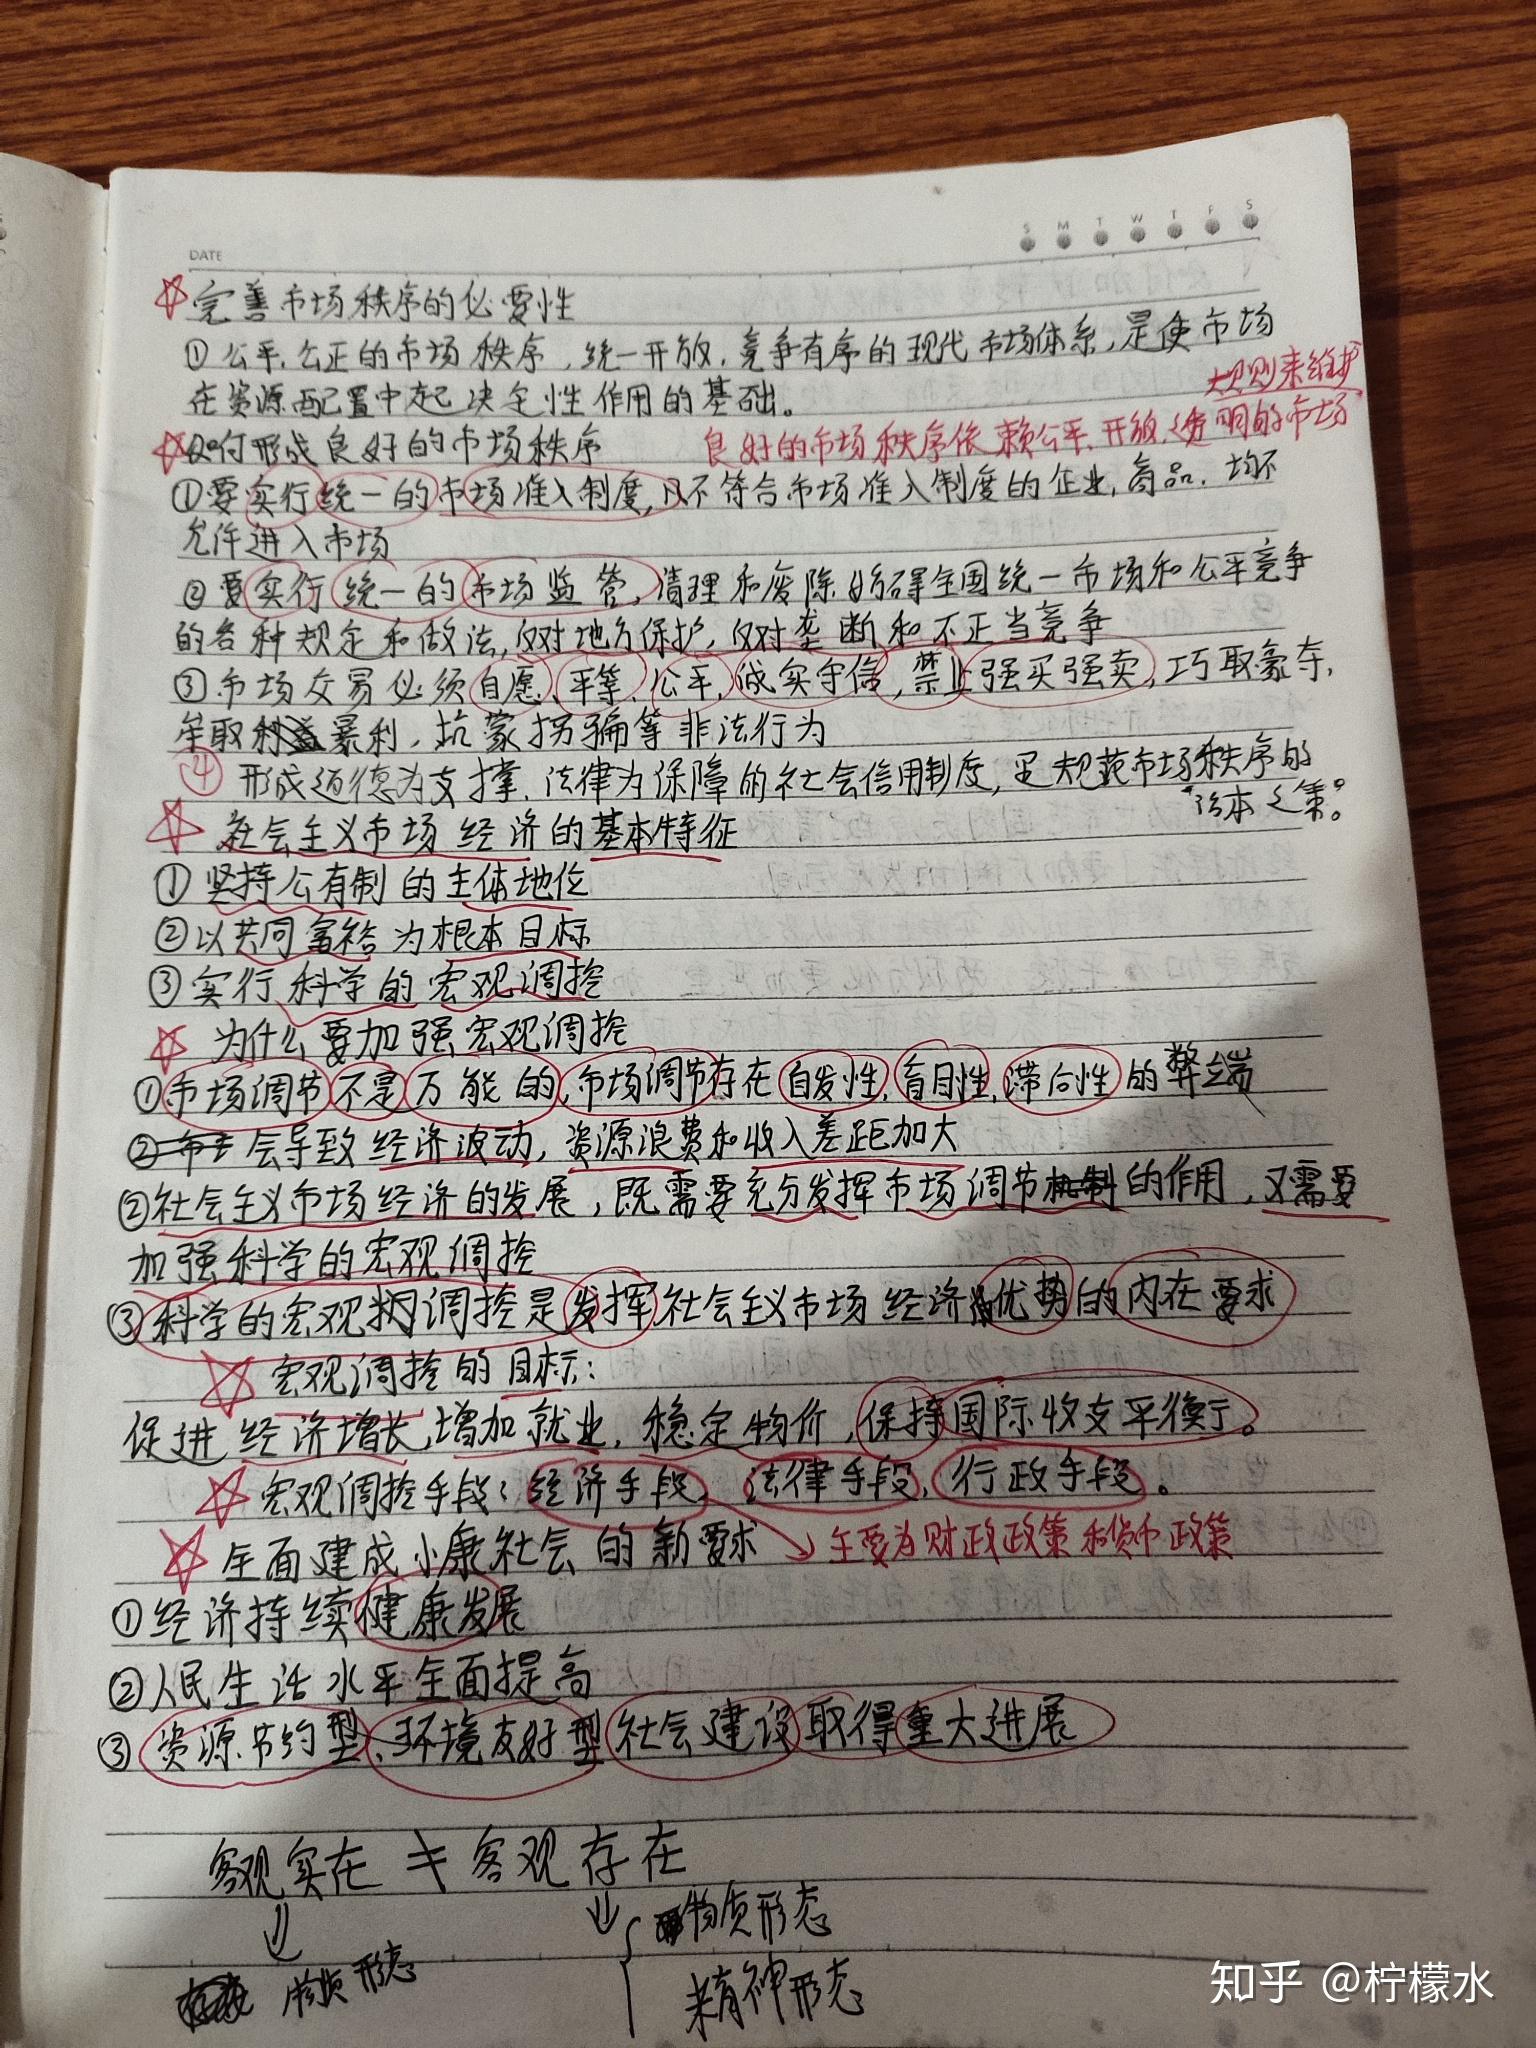 DATE
S M T W T F S
☆完善市场秩序的必要性
①公平、公正的市场秩序，统一开放，竞争有序的现代市场体系，是使市场
在资源配置中起决定性作用的基础。
规则来维护
☆如何形成良好的市场秩序 良好的市场秩序依赖公平、开放、透明的市场
①要实行统一的市场准入制度，凡不符合市场准入制度的企业，商品，均不
允许进入市场
②要实行统一的市场监管，清理和废除妨碍全国统一市场和公平竞争
的各种规定和做法，反对地方保护，反对垄断和不正当竞争
③市场交易必须自愿、平等、公平、诚实守信，禁止强买强卖，巧取豪夺，
牟取暴利，坑蒙拐骗等非法行为
④形成道德为支撑、法律为保障的社会信用制度，是规范市场秩序的
“治本之策”。
☆社会主义市场经济的基本特征
①坚持公有制的主体地位
②以共同富裕为根本目标
③实行科学的宏观调控
☆为什么要加强宏观调控
①市场调节不是万能的，市场调节存在自发性，盲目性，滞后性的弊端
会导致经济波动，资源浪费和收入差距加大
②社会主义市场经济的发展，既需要充分发挥市场调节的作用，又需要
加强科学的宏观调控
③科学的宏观调控是发挥社会主义市场经济优势的内在要求
☆宏观调控的目标：
促进经济增长，增加就业，稳定物价，保持国际收支平衡。
☆宏观调控手段：经济手段、法律手段、行政手段。
☆全面建成小康社会的新要求 →主要为财政政策和货币政策
①经济持续健康发展
②人民生活水平全面提高
③资源节约型、环境友好型社会建设取得重大进展
客观实在≠客观存在
物质形态
物质形态
精神形态
知乎 @柠檬水